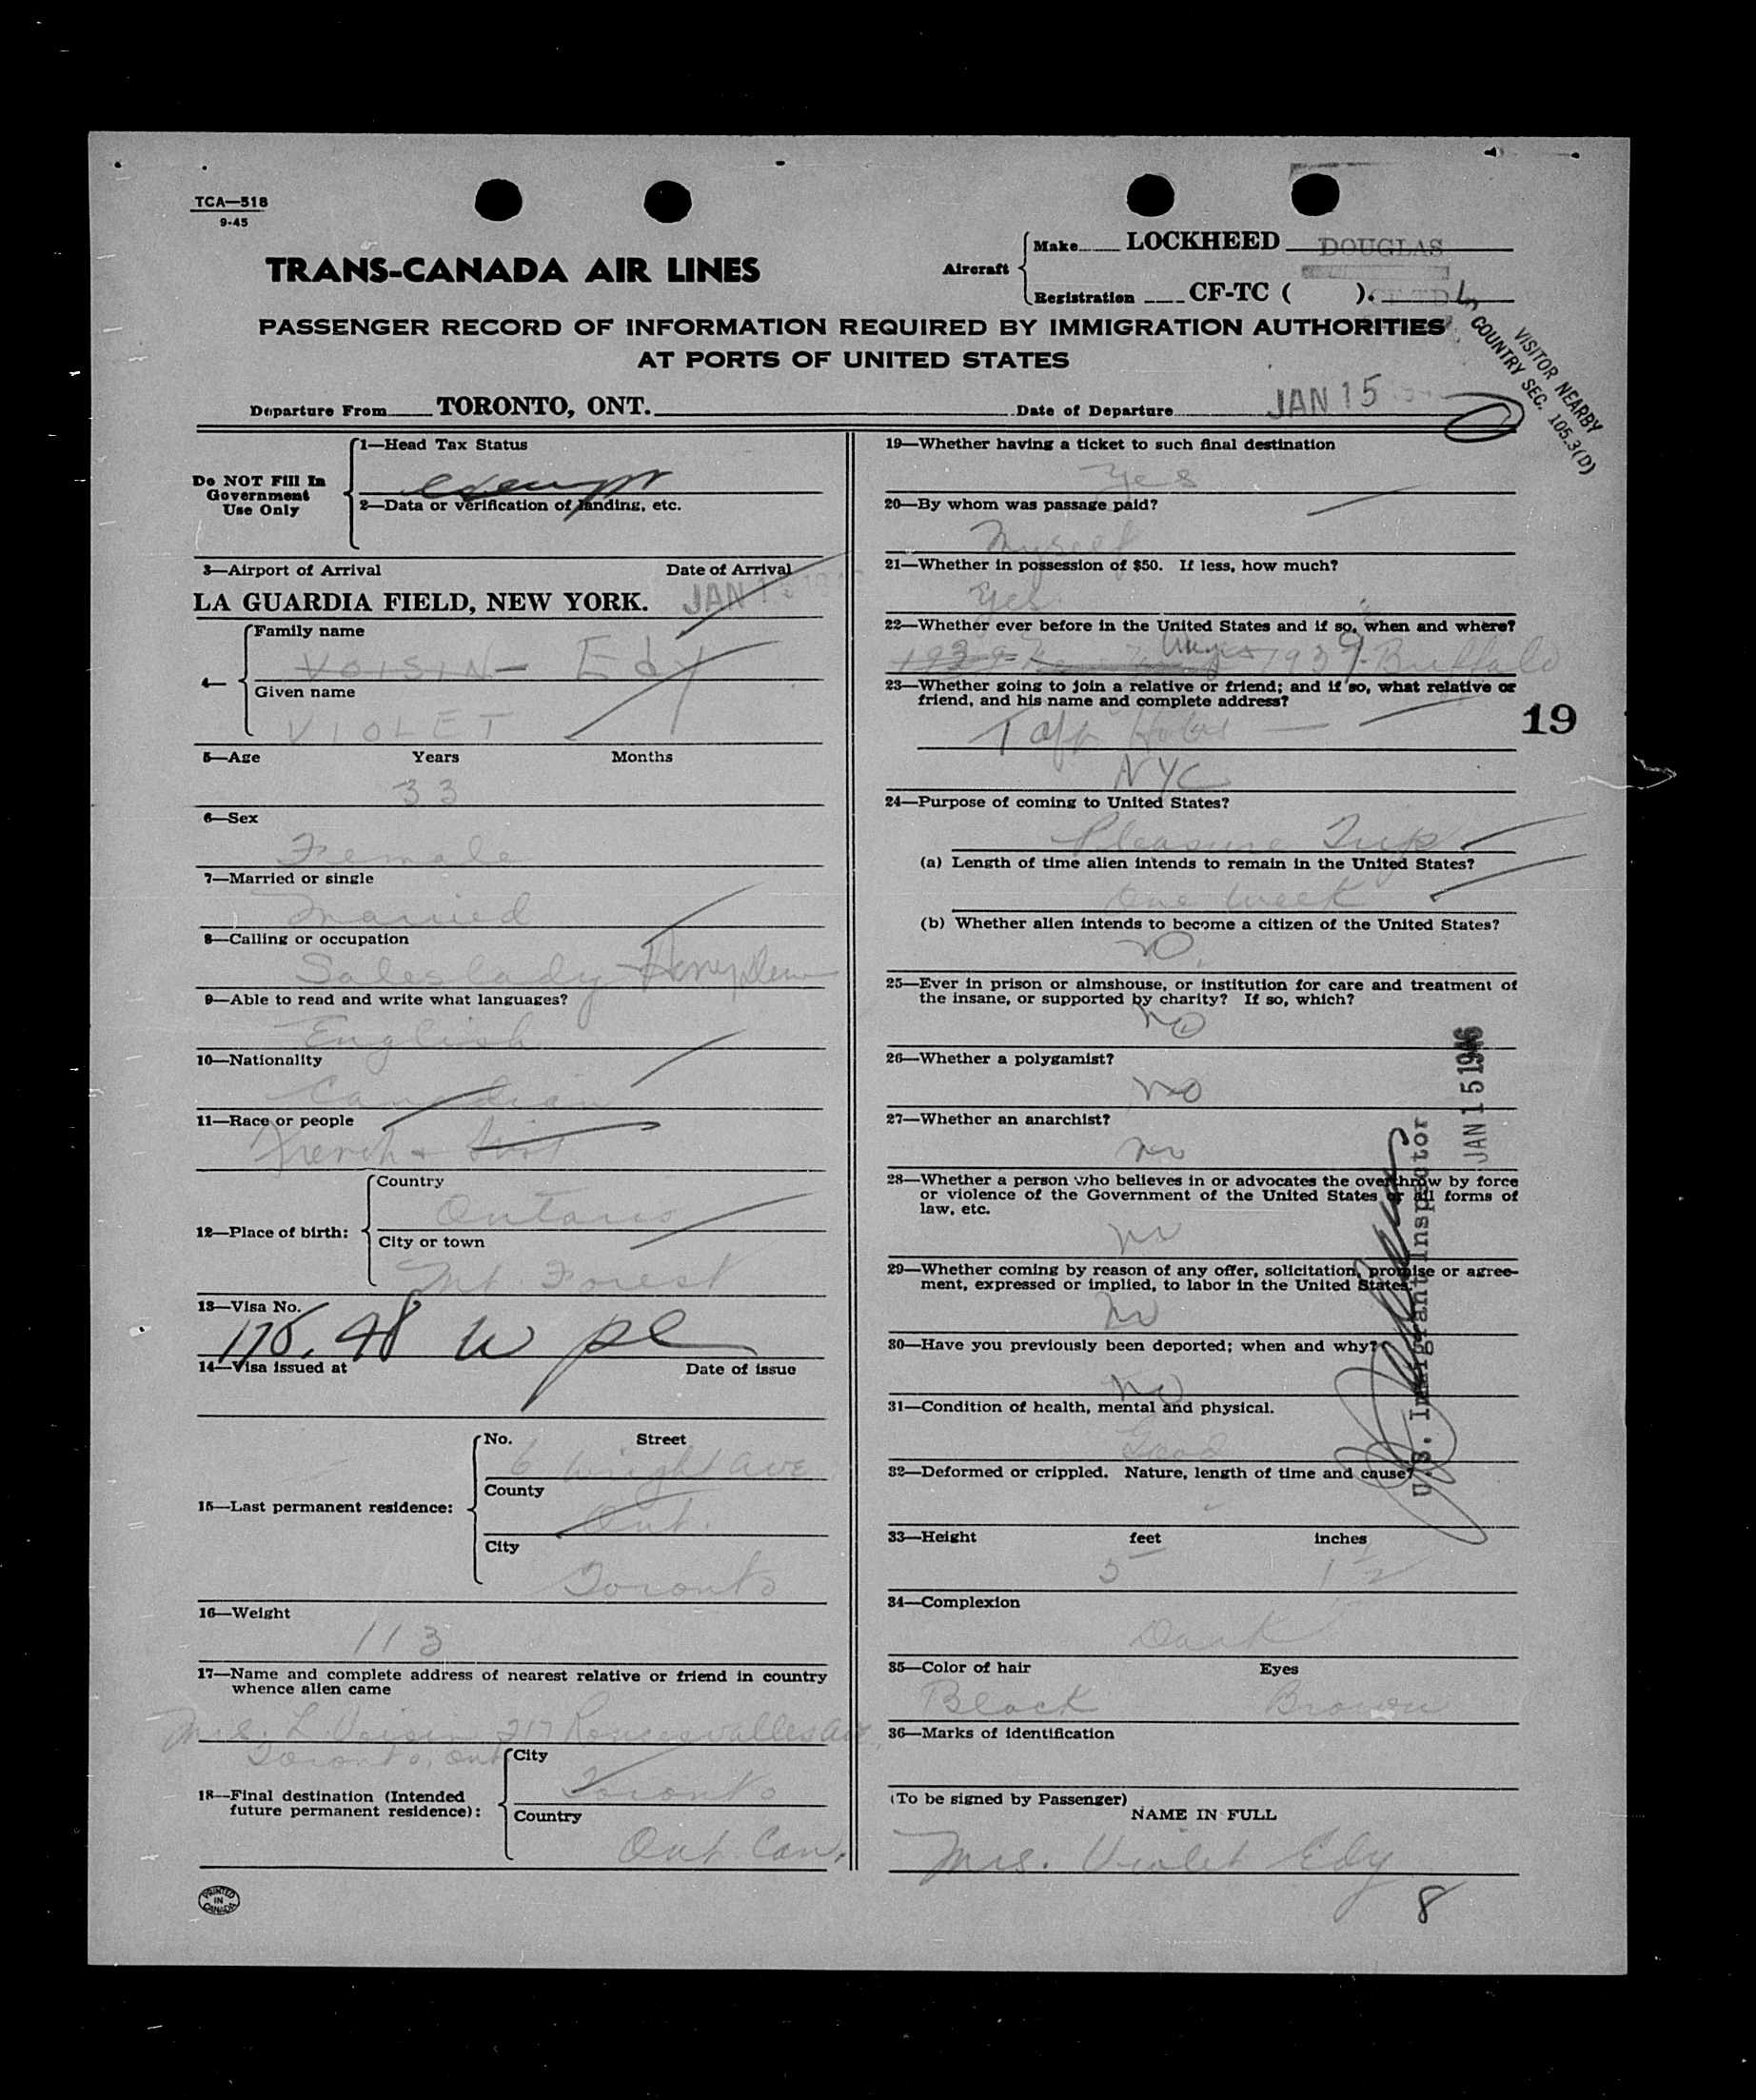 TCA—518
9-45
TRANS-CANADA AIR LINES
Aircraft
Make LOCKHEED DOUGLAS
Registration CF-TC ( ). CF-TD
PASSENGER RECORD OF INFORMATION REQUIRED BY IMMIGRATION AUTHORITIES
AT PORTS OF UNITED STATES
VISITOR NEARBY
COUNTRY SEC. 105.3(D)
Departure From TORONTO, ONT. Date of Departure JAN 15
Do NOT Fill In
Government
Use Only
1—Head Tax Status
exempt
2—Data or verification of landing, etc.
3—Airport of Arrival Date of Arrival
LA GUARDIA FIELD, NEW YORK. JAN 15
4—
Family name
VOISIN Edy
Given name
VIOLET
5—Age Years Months
33
6—Sex
Female
7—Married or single
Married
8—Calling or occupation
Saleslady
9—Able to read and write what languages?
English
10—Nationality
Canadian
11—Race or people
French &
12—Place of birth:
Country
Ontario
City or town
Mt. Forest
13—Visa No.
175.48
14—Visa issued at Date of issue
15—Last permanent residence:
No. Street
6 Wright Ave
County
Ont.
City
Toronto
16—Weight
113
17—Name and complete address of nearest relative or friend in country
whence alien came
Mrs. L. Voisin 217 Roncesvalles Ave,
Toronto, Ont
18—Final destination (Intended
future permanent residence):
City
Toronto
Country
Ont. Can.
PRINTED
IN
CANADA
19—Whether having a ticket to such final destination
Yes
20—By whom was passage paid?
Myself
21—Whether in possession of $50. If less, how much?
Yes
22—Whether ever before in the United States and if so, when and where?
1939 1939 - Buffalo
23—Whether going to join a relative or friend; and if so, what relative or
friend, and his name and complete address?
Taft Hotel
NYC
19
24—Purpose of coming to United States?
Pleasure Trip
(a) Length of time alien intends to remain in the United States?
One week
(b) Whether alien intends to become a citizen of the United States?
no.
25—Ever in prison or almshouse, or institution for care and treatment of
the insane, or supported by charity? If so, which?
no
26—Whether a polygamist?
no
27—Whether an anarchist?
no
28—Whether a person who believes in or advocates the overthrow by force
or violence of the Government of the United States or all forms of
law, etc.
no
29—Whether coming by reason of any offer, solicitation, promise or agree-
ment, expressed or implied, to labor in the United States.
no
30—Have you previously been deported; when and why?
no
31—Condition of health, mental and physical.
Good
32—Deformed or crippled. Nature, length of time and cause?
33—Height feet inches
5 1 1/2
34—Complexion
Dark
35—Color of hair Eyes
Black Brown
36—Marks of identification
(To be signed by Passenger)
NAME IN FULL
Mrs. Violet Edy
8
U.S. Immigrant Inspector
JAN 15 1946